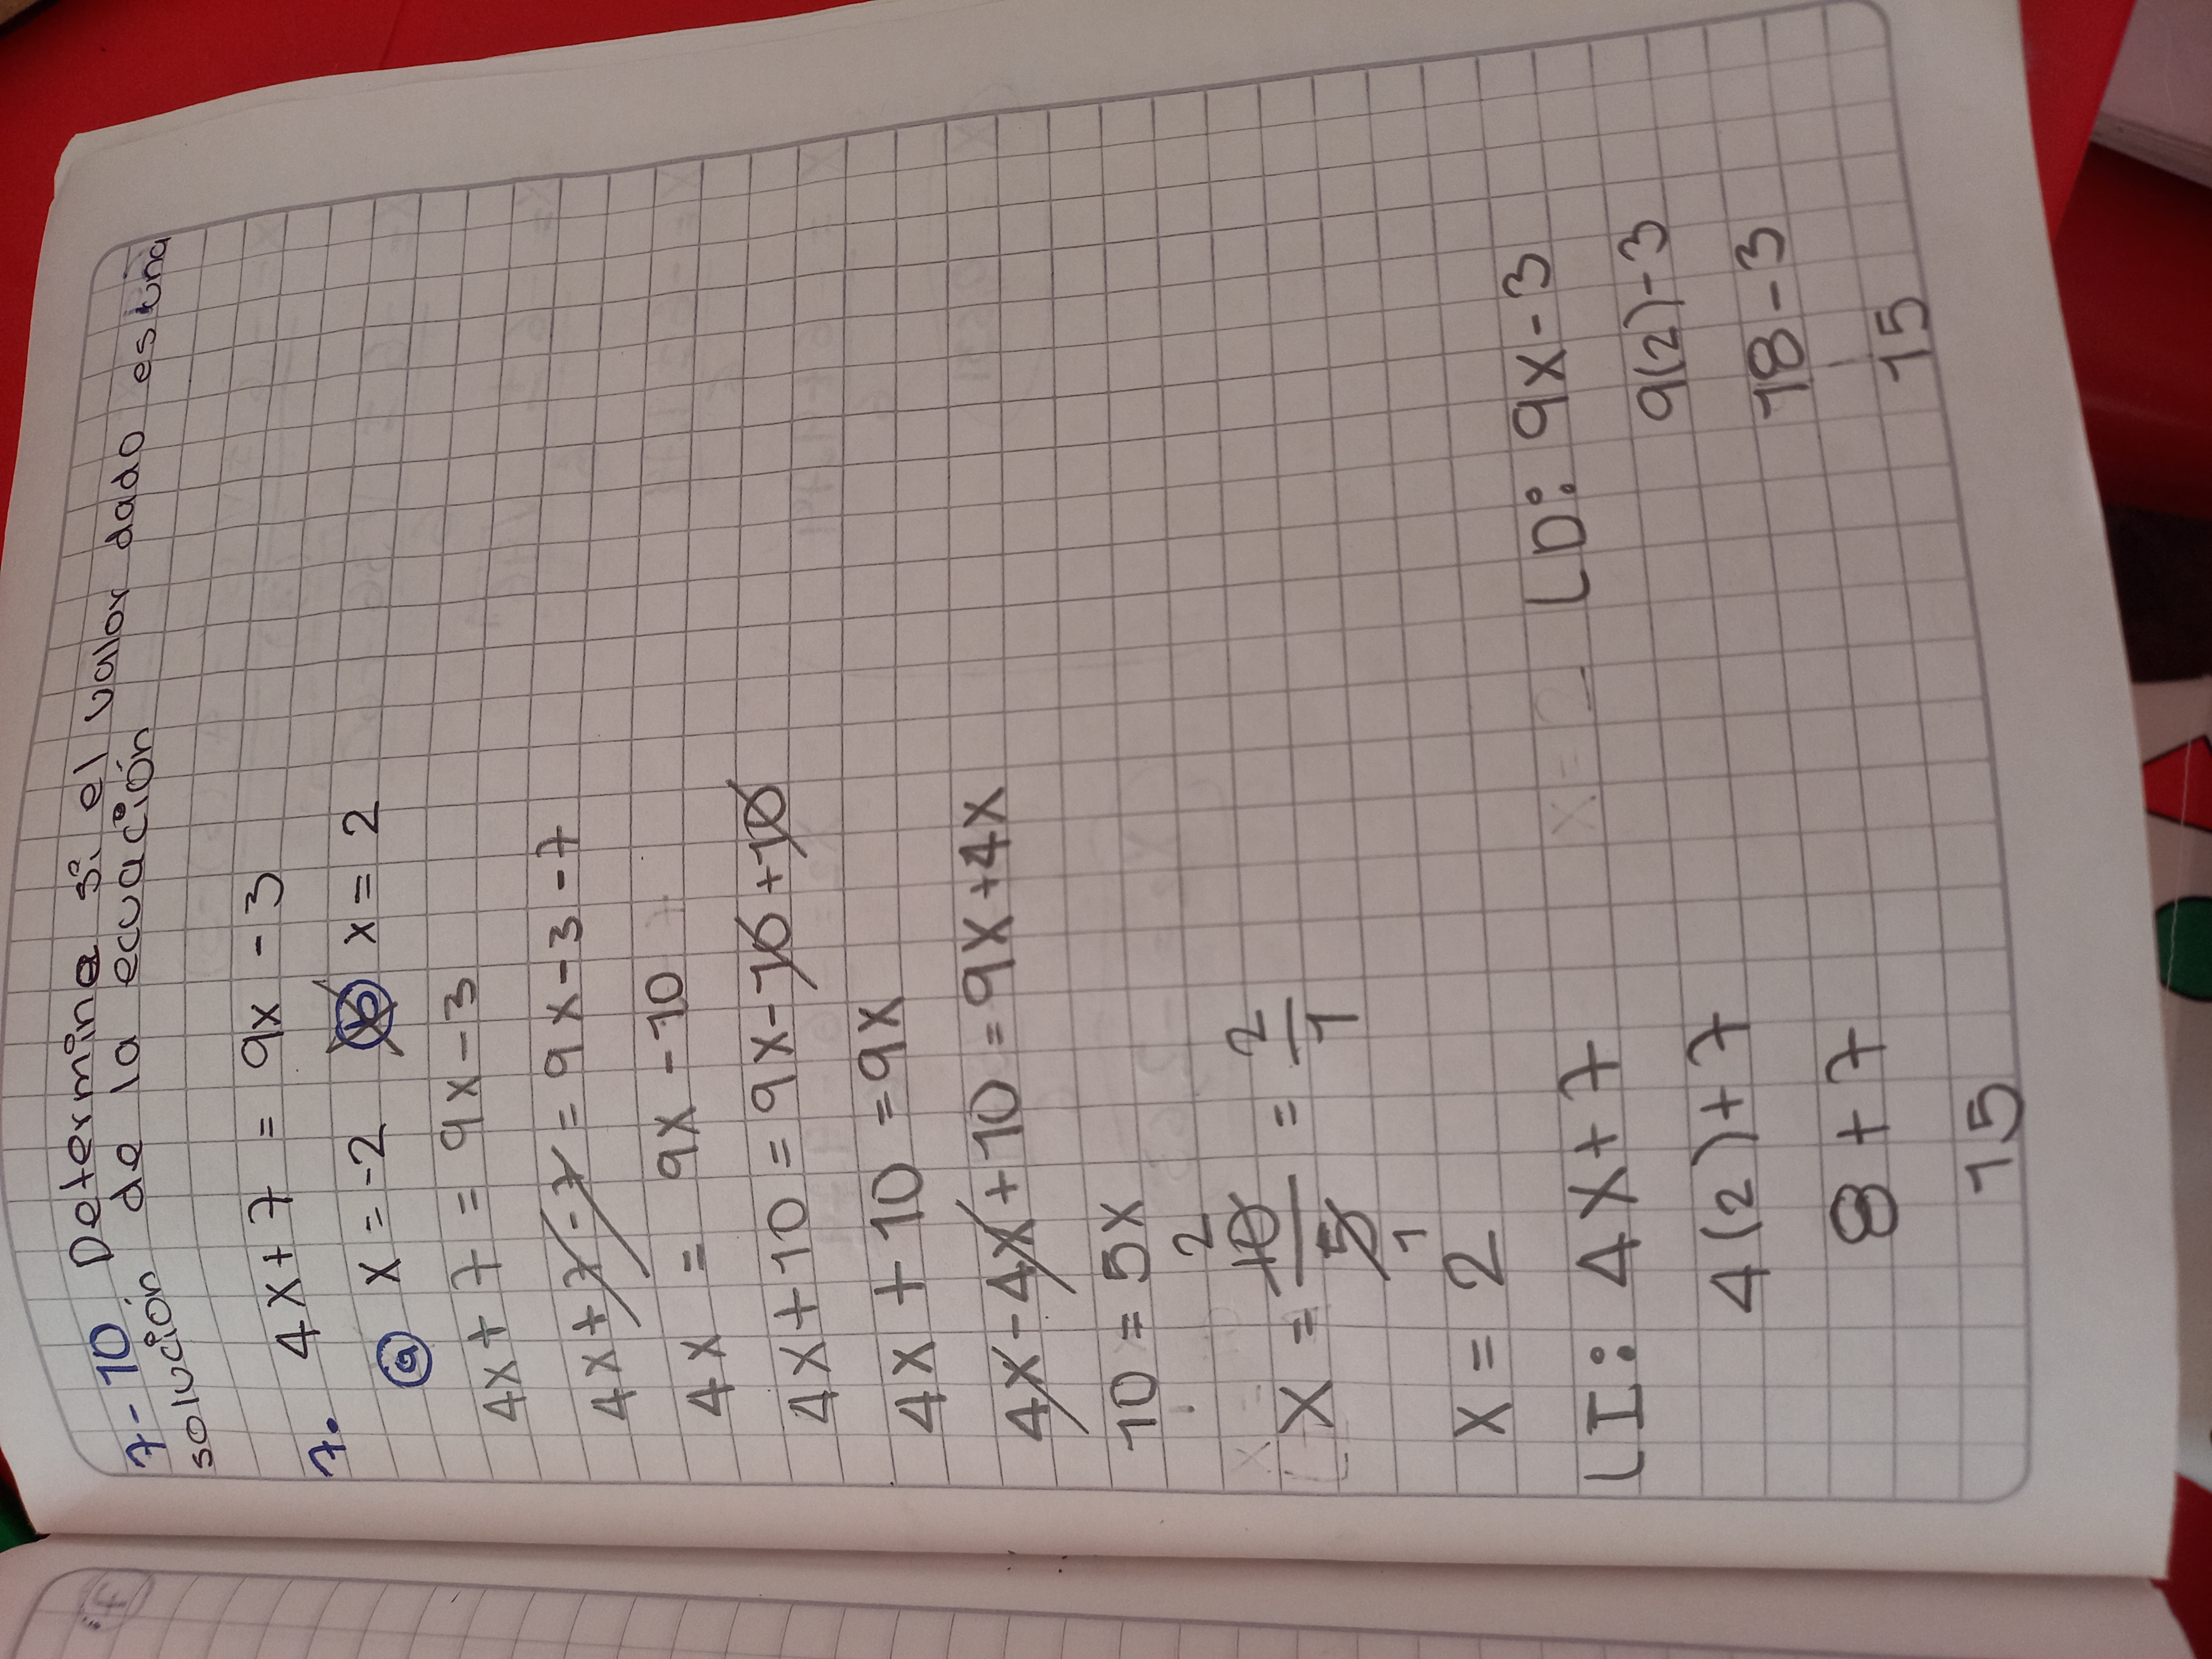 7-10. Determine si el valor dado es una
solución de la ecuación
7. 4x + 7 = 9x - 3
a x = -2 b x = 2
4x + 7 = 9x - 3
4x + 7 - 7 = 9x - 3 - 7
4x = 9x - 10
4x + 10 = 9x - 10 + 10
4x + 10 = 9x
4x - 4x + 10 = 9x + 4x
10 = 5x
2
x = 10/5 = 2/1
1
x = 2
LI: 4x + 7 LD: 9x - 3
4(2) + 7 9(2) - 3
8 + 7 18 - 3
15 15